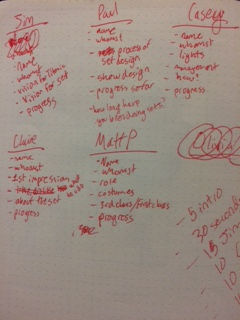 Jim
- name
- whoamst
- vision for Titanic
- Vision for set
- progress
Paul
- name
- whoamst
- process of
set design
- show design
- progress so far
- how long have
you been doing sets?
Casey
- name
- whoamst
- lights
- management
- how?
- progress
Claire
- name
- whoamst
- 1st impression
- about the set
- progress
Matt P
- Name
- whoamst
- role
- costumes
- 3rd class/first class
- progress
- 5 intro
- 30 seconds
- 15 Jim
- 10